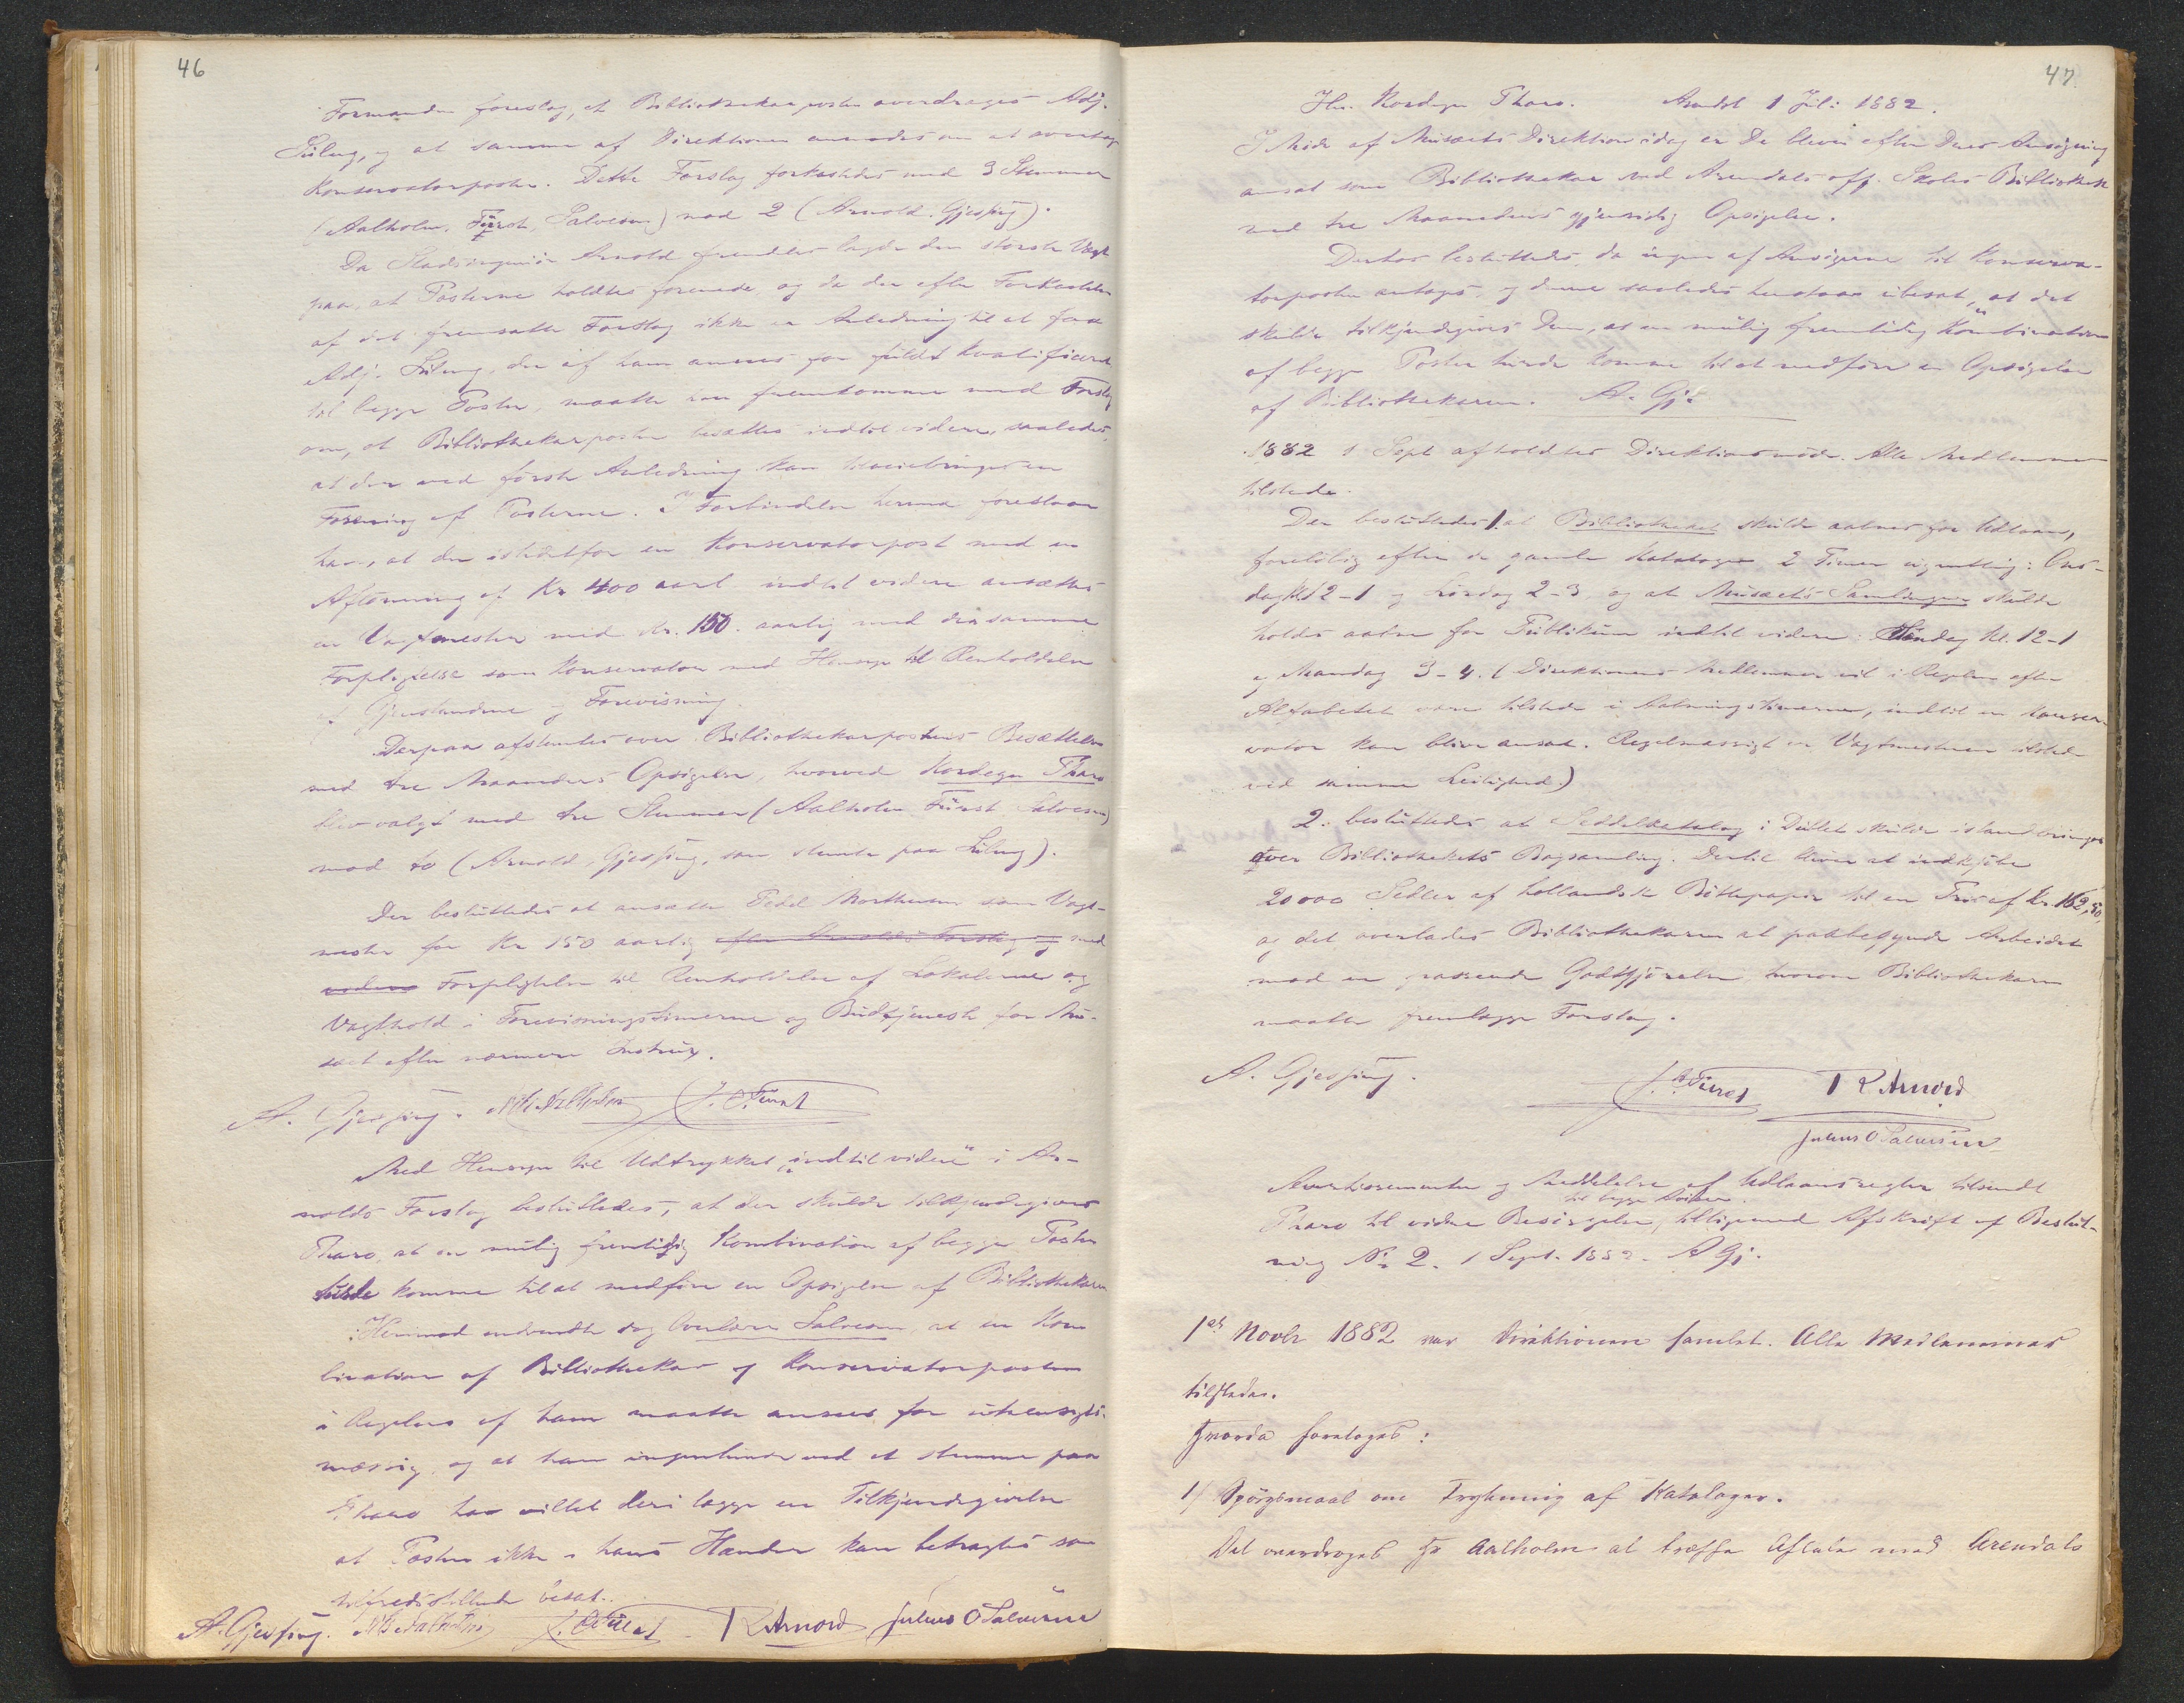 46
Formanden foreslog, at Bibliothekarposten overdroges Adj.
og at samme af Direktionen anmodes om at overtage
Konservatorposten. Dette Forslag forkastedes med 3 Stemmer
(Aalholm, Fürst, Salvesen) mod 2 (Arnold, Gjessing).
Da Stadsingeniør Arnold fremdeles lagde den største Vægt
paa, at Posterne holdtes forenede og da der efter Forkastelsen
af det fremsatte Forslag ikke er Anledning til at faa
Adj. der af ham ansees for fuldt kvalificeret
til begge Poster, maatte han fremkomme med Forslag
om, at Bibliothekarposten besættes indtil videre, saaledes,
at der ved første Anledning kan tilveiebringes en
Forening af Posterne. I Forbindelse hermed foreslaar
han, at der istedetfor en Konservatorpost med en
Aflønning af Kr 400 aarl. indtil videre ansættes
en Vagtmester med Kr. 150 aarlig med den samme
Forpligtelse som Konservator med Hensyn til Renholdelse
af Gjenstandene og Forevisning.
Derpaa afstemtes over Bibliothekarpostens Besættelse
med tre Maaneders Opsigelse, hvorved Kordegn Tharo
blev valgt med tre Stemmer (Aalholm Fürst Salvesen)
mod to (Arnold, Gjessing, som stemte paa
Der besluttedes at ansætte Pedel Morthensen som Vagt-
mester for Kr 150 aarlig efter Arnolds Forslag og med
videre Forpligtelse til Renholdelse af Lokalerne og
Vagthold i Forevisningstimerne og Budtjeneste for Mu-
sæet efter nærmere Instrux.
A. Gjessing. Nils Aalholm J. C. Fürst
Med Hensyn til Udtrykket „indtil videre" i Ar-
nolds Forslag besluttedes, at der skulde tilkjendegives
Tharo, at en mulig fremtidig Kombination af begge Poster
turde komme til at medføre en Opsigelse af Bibliothekaren
Herimod indvendte dog Overlærer Salvesen, at en Kom-
bination af Bibliothekar og Konservatorposten
i Regelen af ham maatte ansees for uhensigts-
mæssig, og at han ingenlunde ved at stemme paa
Tharo har villet deri lægge en Tilkjendegivelse
at Posten ikke i hans Hænder kan betragtes som
tilfredsstillende besat.
A. Gjessing. Nils Aalholm J. C. Fürst R Arnold Julius O Salvesen
47
Hr. Kordegn Tharo. Arendal 1 Juli 1882.
I Møde af Musæets Direktion idag er De bleven efter Deres Ansøgning
ansat som Bibliothekar ved Arendals off. Skoles Bibliothek
med tre Maaneders gjensidig Opsigelse.
Derhos besluttedes, da ingen af Ansøgerne til Konserva-
torposten antoges, og denne saaledes henstaar ubesat, at det
skulde tilkjendegives Dem, at en mulig fremtidig Kombination
af begge Poster turde komme til at medføre en Opsigelse
af Bibliothekaren. A. Gj.
1882 1 Sept afholdtes Direktionsmøde. Alle Medlemmer
tilstede.
Der besluttedes 1. at Bibliotheket skulde aabnes for Udlaan,
foreløbig efter de gamle Kataloger 2 Timer ugentlig: Ons-
dag Kl 12-1 og Lørdag 2-3, og at Musæets Samlinger skulde
holdes aabne for Publikum indtil videre: Søndag kl. 12-1
og Mandag 3-4. (Direktionens Medlemmer vil i Regelen efter
Alfabetet være tilstede i Aabningstimerne, indtil en Konser-
vator kan blive ansat. Regelmæssigt er Vagtmesteren tilstede
ved samme Leilighed)
2. besluttedes at Seddelkatalog i Duplet skulde istandbringes
over Bibliothekets Bogsamling. Dertil bliver at indkjøbe
20000 Sedler af hollandsk Bøttepapir til en Pris af Kr. 162,50
og det overlades Bibliothekaren at paabegynde Arbeidet
mod en passende Godtgjørelse, hvorom Bibliothekaren
maatte fremlægge Forslag.
A. Gjessing. J. C. Fürst R Arnold
Julius O Salvesen
Avertissementer og Meddelelse af Udlaansregler tilsendt
til begge Aviser
Tharo til videre Besørgelse, tilligemed Afskrift af Beslut-
ning No 2. 1 Sept. 1882. A Gj.
1ste Novbr 1882 var Direktionen samlet. Alle Medlemmer
tilstede.
Hvorda foretoges:
1/ Spørgsmaal om Trykning af Kataloger.
Det overdroges Hr Aalholm at træffe Aftale med Arendals